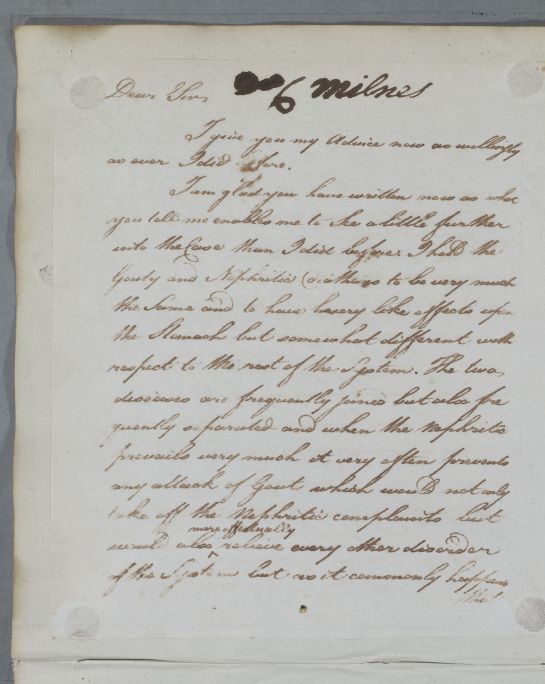 Dear Sir, 6 Milnes
I give you my Advice now as willingly
as ever I did before.
I am glad you have written now as what
you tell me enables me to see a little further
into the Case than I did before. I hold the
Gouty and Nephritic to be very much
the same and to have very like effects upon
the Stomach but somewhat different with
respect to the rest of the System. The two
diseases are frequently joined but also fre
quently separated and when the Nephritic
prevails very much it very often prevents
any attack of Gout which would not only
take off the Nephritic complaints but
more effectually
would also relieve every other disorder
of the System but as it commonly happens
that